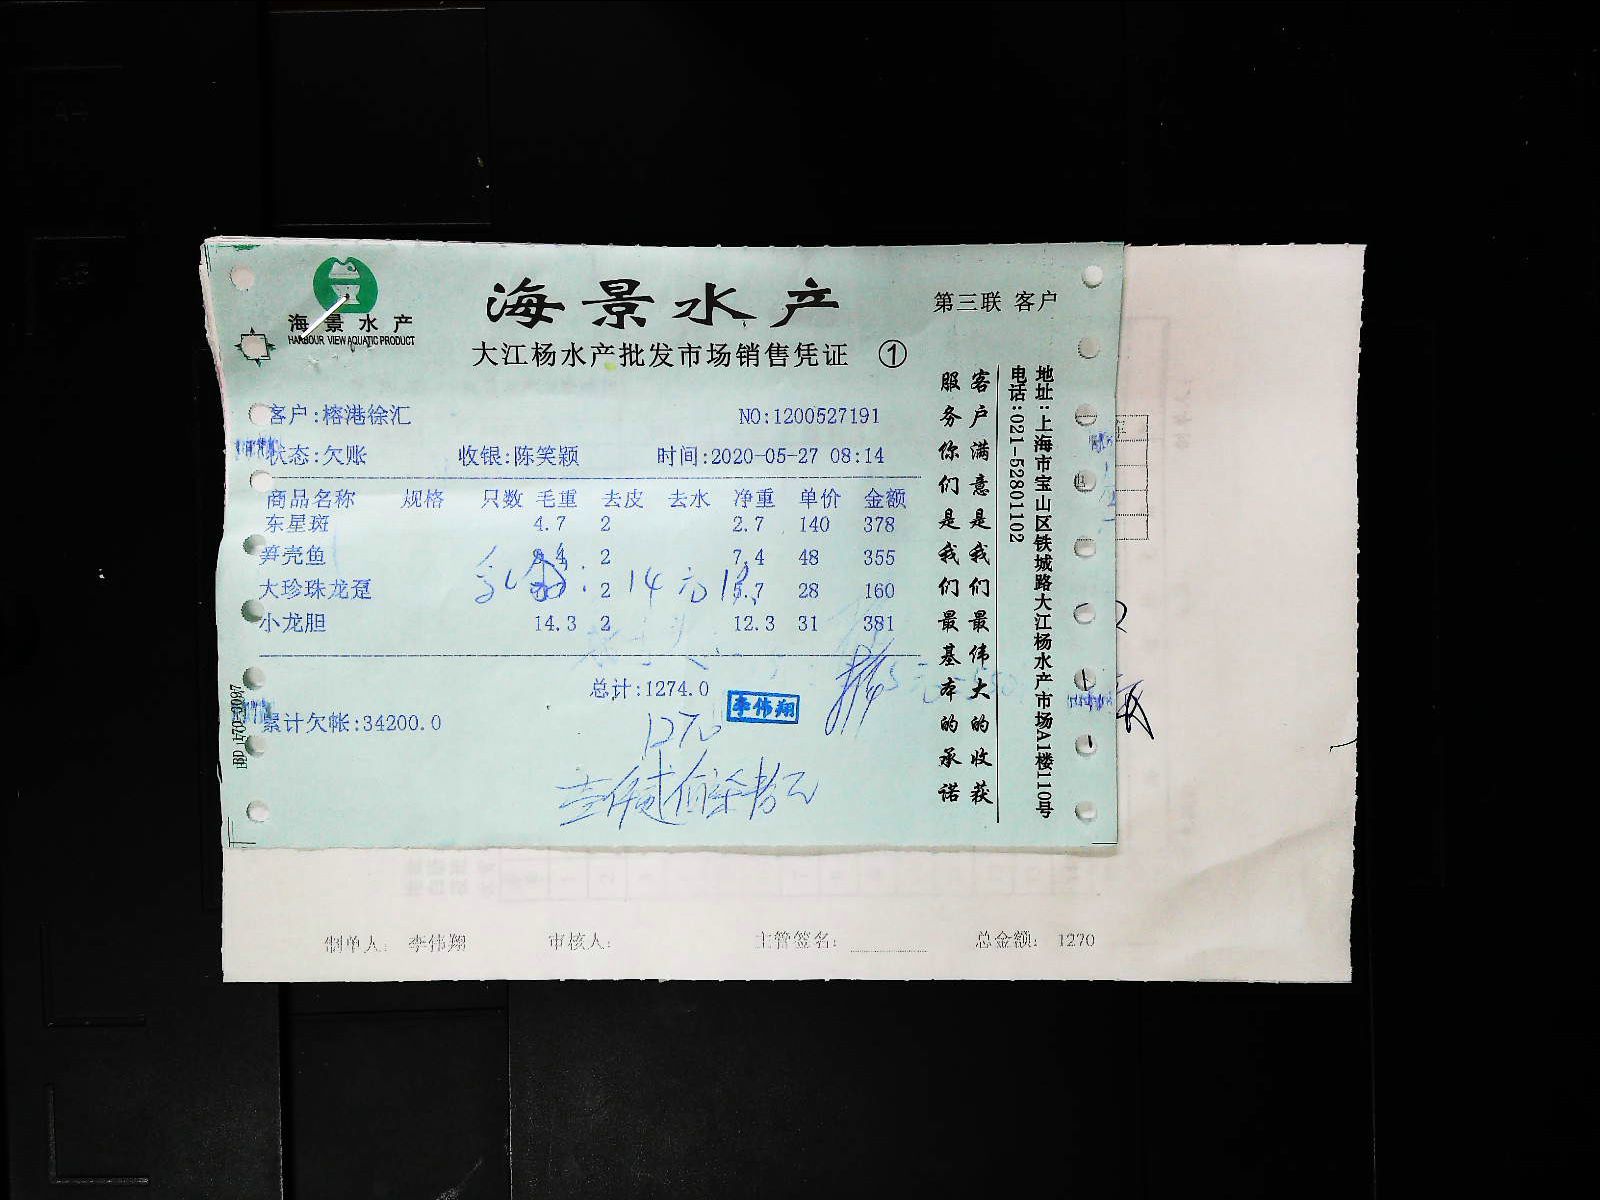 海景水产
HARBOUR VIEW AQUATIC PRODUCT
海景水产
第三联 客户
大江杨水产批发市场销售凭证 ①
客户:榕港徐汇 NO:1200527191
状态:欠账 收银:陈笑颖 时间:2020-05-27 08:14
商品名称 规格 只数 毛重 去皮 去水 净重 单价 金额
东星斑 4.7 2 2.7 140 378
笋壳鱼 2 7.4 48 355
大珍珠龙趸 2 28 160
小龙胆 14.3 2 12.3 31 381
14元
总计:1274.0
李伟翔
累计欠帐:34200.0
1270
客户满意是我们最伟大的收获
服务你们是我们最基本的承诺
地址:上海市宝山区铁城路大江杨水产市场A1楼110号
电话:021-52801102
制单人: 李伟翔 审核人: 主管签名: 总金额: 1270